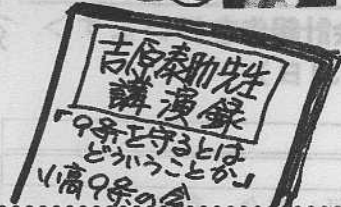 吉原泰助先生
講演録
「9条を守るとは
どういうことか」
小高9条の会